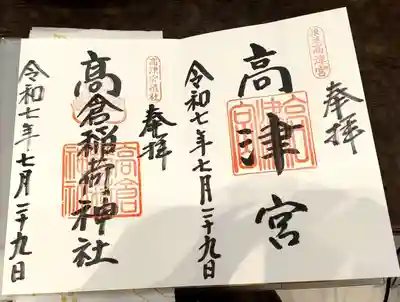 奉拝
浪速高津宮
高津宮
令和七年七月二十九日
奉拝
高津宮境内社
髙倉稲荷神社
令和七年七月二十九日